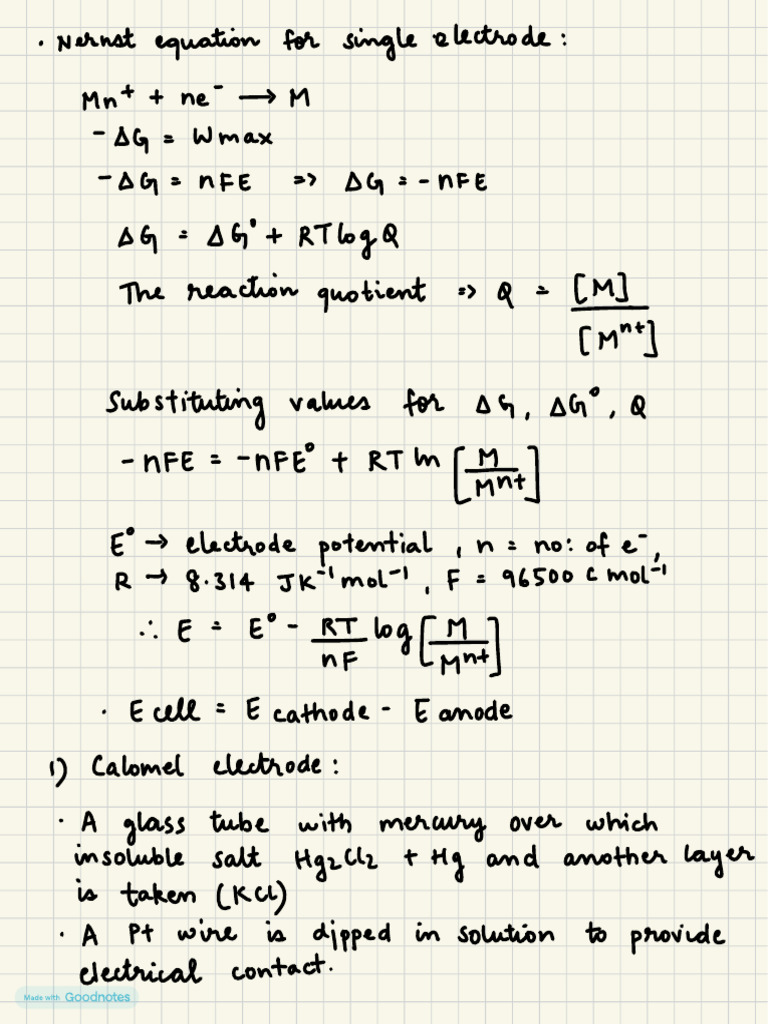 · Nernst equation for single electrode:
Mn⁺ + ne⁻ ⟶ M
-ΔG = Wmax
-ΔG = nFE => ΔG = -nFE
ΔG = ΔG° + RT log Q
The reaction quotient => Q = [M] / [Mⁿ⁺]
Substituting values for ΔG, ΔG°, Q
-nFE = -nFE° + RT ln [M / Mⁿ⁺]
E° → electrode potential, n = no: of e⁻,
R → 8.314 JK⁻¹mol⁻¹, F = 96500 C mol⁻¹
∴ E = E° - RT/nF log [M / Mⁿ⁺]
· E cell = E cathode - E anode
1) Calomel electrode:
· A glass tube with mercury over which
insoluble salt Hg₂Cl₂ + Hg and another layer
is taken (KCl)
· A Pt wire is dipped in solution to provide
electrical contact.
Made with Goodnotes